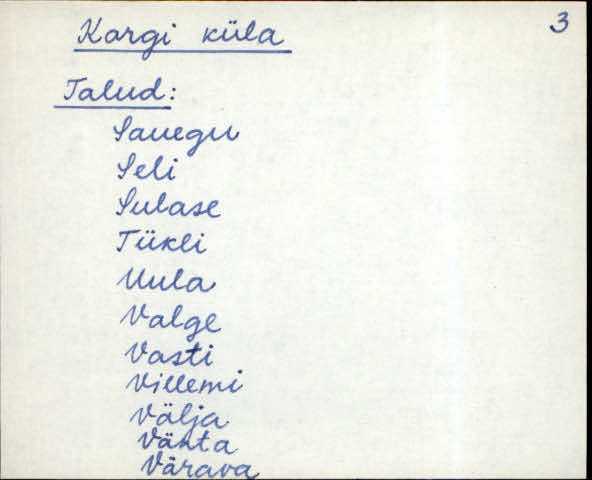 Kargi küla
3
Talud:
Sauegu
Seli
Sulase
Tükli
Uula
Valge
Vasti
Villemi
Välja
Vänta
Värava